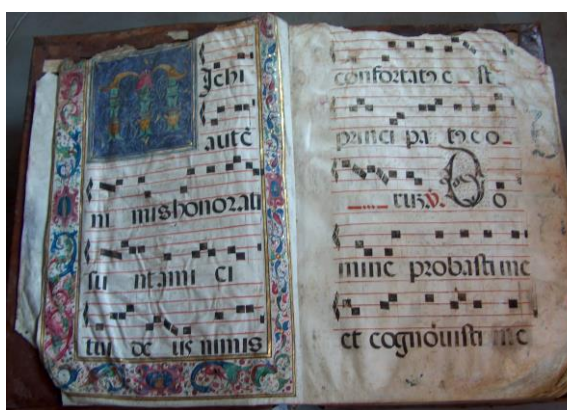 M
ichi
autē
ni mis honorati
su nt ami ci
tui de us nimis
confortatꝰ e st
princi pa tꝰ e o
ruꝫ. ℣. Do
mine probasti me
et cognouisti me